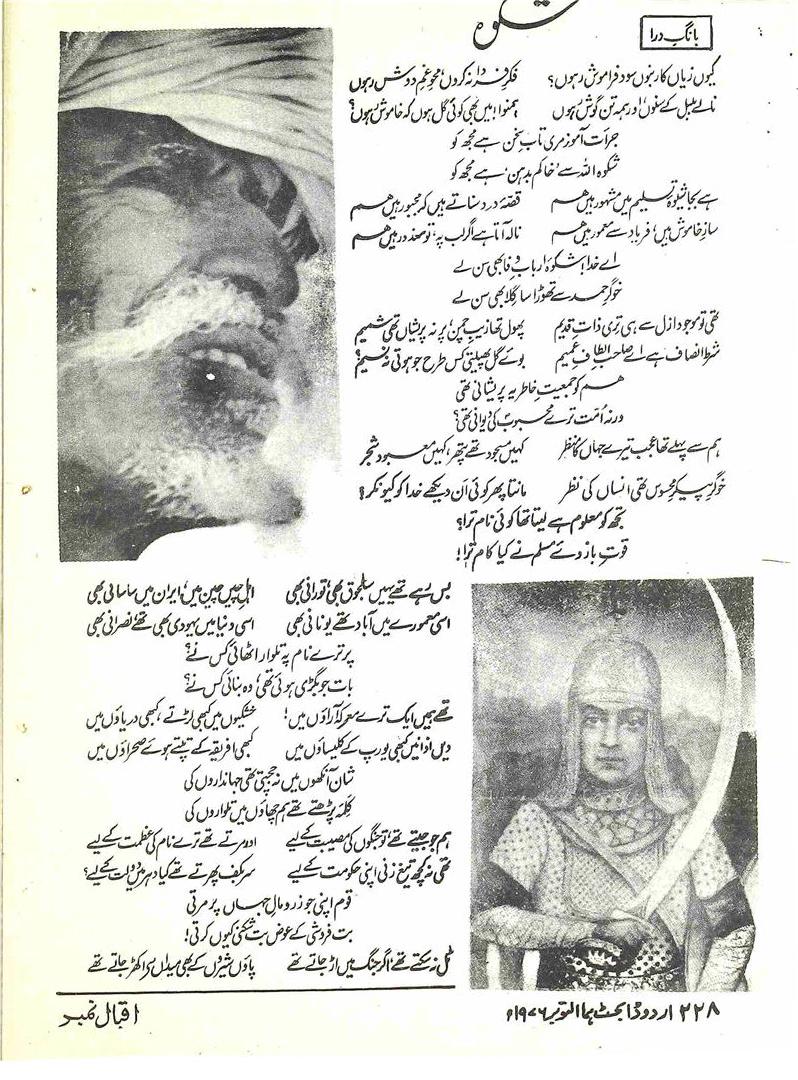 بانگِ درا
شکوہ
کیوں زیاں کار بنوں سود فراموش رہوں؟ فکرِ فردا نہ کروں، محوِ غمِ دوش رہوں
نالے بلبل کے سنوں اور ہمہ تن گوش رہوں ہمنوا! میں بھی کوئی گل ہوں کہ خاموش رہوں؟
جرأت آموز مری تابِ سخن ہے مجھ کو
شکوہ اللہ سے ’خاکم بدہن‘ ہے مجھ کو
ہے بجا شیوۂ تسلیم میں مشہور ہیں ہم قصۂ درد سناتے ہیں کہ مجبور ہیں ہم
سازِ خاموش ہیں، فریاد سے معمور ہیں ہم نالہ آتا ہے اگر لب پہ، تو معذور ہیں ہم
اے خدا! شکوۂ اربابِ وفا بھی سن لے
خوگرِ حمد سے تھوڑا سا گلا بھی سن لے
تھی تو موجود ازل سے ہی تری ذاتِ قدیم پھول تھا زیبِ چمن، پر نہ پریشاں تھی شمیم
شرط انصاف ہے اے صاحبِ الطافِ عمیم بوئے گل پھیلتی کس طرح جو ہوتی نہ نسیم؟
ہم کو جمعیتِ خاطر یہ پریشانی تھی
ورنہ اُمت ترے محبوبؐ کی دیوانی تھی؟
ہم سے پہلے تھا عجب تیرے جہاں کا منظر کہیں مسجود تھے پتھر، کہیں معبود شجر
خوگرِ پیکرِ محسوس تھی انساں کی نظر مانتا پھر کوئی اَن دیکھے خدا کو کیونکر؟
تجھ کو معلوم ہے لیتا تھا کوئی نام ترا؟
قوتِ بازوئے مسلم نے کیا کام ترا!
بس رہے تھے یہیں سلجوق بھی، تورانی بھی اہلِ چیں چین میں، ایران میں ساسانی بھی
اسی معمورے میں آباد تھے یونانی بھی اسی دنیا میں یہودی بھی تھے، نصرانی بھی
پر ترے نام پہ تلوار اٹھائی کس نے؟
بات جو بگڑی ہوئی تھی، وہ بنائی کس نے؟
تھے ہمیں ایک ترے معرکہ آراؤں میں! خشکیوں میں کبھی لڑتے، کبھی دریاؤں میں
دیں اذانیں کبھی یورپ کے کلیساؤں میں کبھی افریقہ کے تپتے ہوئے صحراؤں میں
شان آنکھوں میں نہ جچتی تھی جہانداروں کی
کلمہ پڑھتے تھے ہم چھاؤں میں تلواروں کی
ہم جو جیتے تھے، تو جنگوں کی مصیبت کے لیے اور مرتے تھے ترے نام کی عظمت کے لیے
تھی نہ کچھ تیغ زنی اپنی حکومت کے لیے سر بکف پھرتے تھے کیا دہر میں دولت کے لیے؟
قوم اپنی جو زر و مالِ جہاں پر مرتی
بت فروشی کے عوض بت شکنی کیوں کرتی!
ٹل نہ سکتے تھے، اگر جنگ میں اڑ جاتے تھے پاؤں شیروں کے بھی میداں سے اکھڑ جاتے تھے
۲۲۸ اردو ڈائجسٹ ہما اکتوبر ۱۹۷۶ء
اقبال نمبر